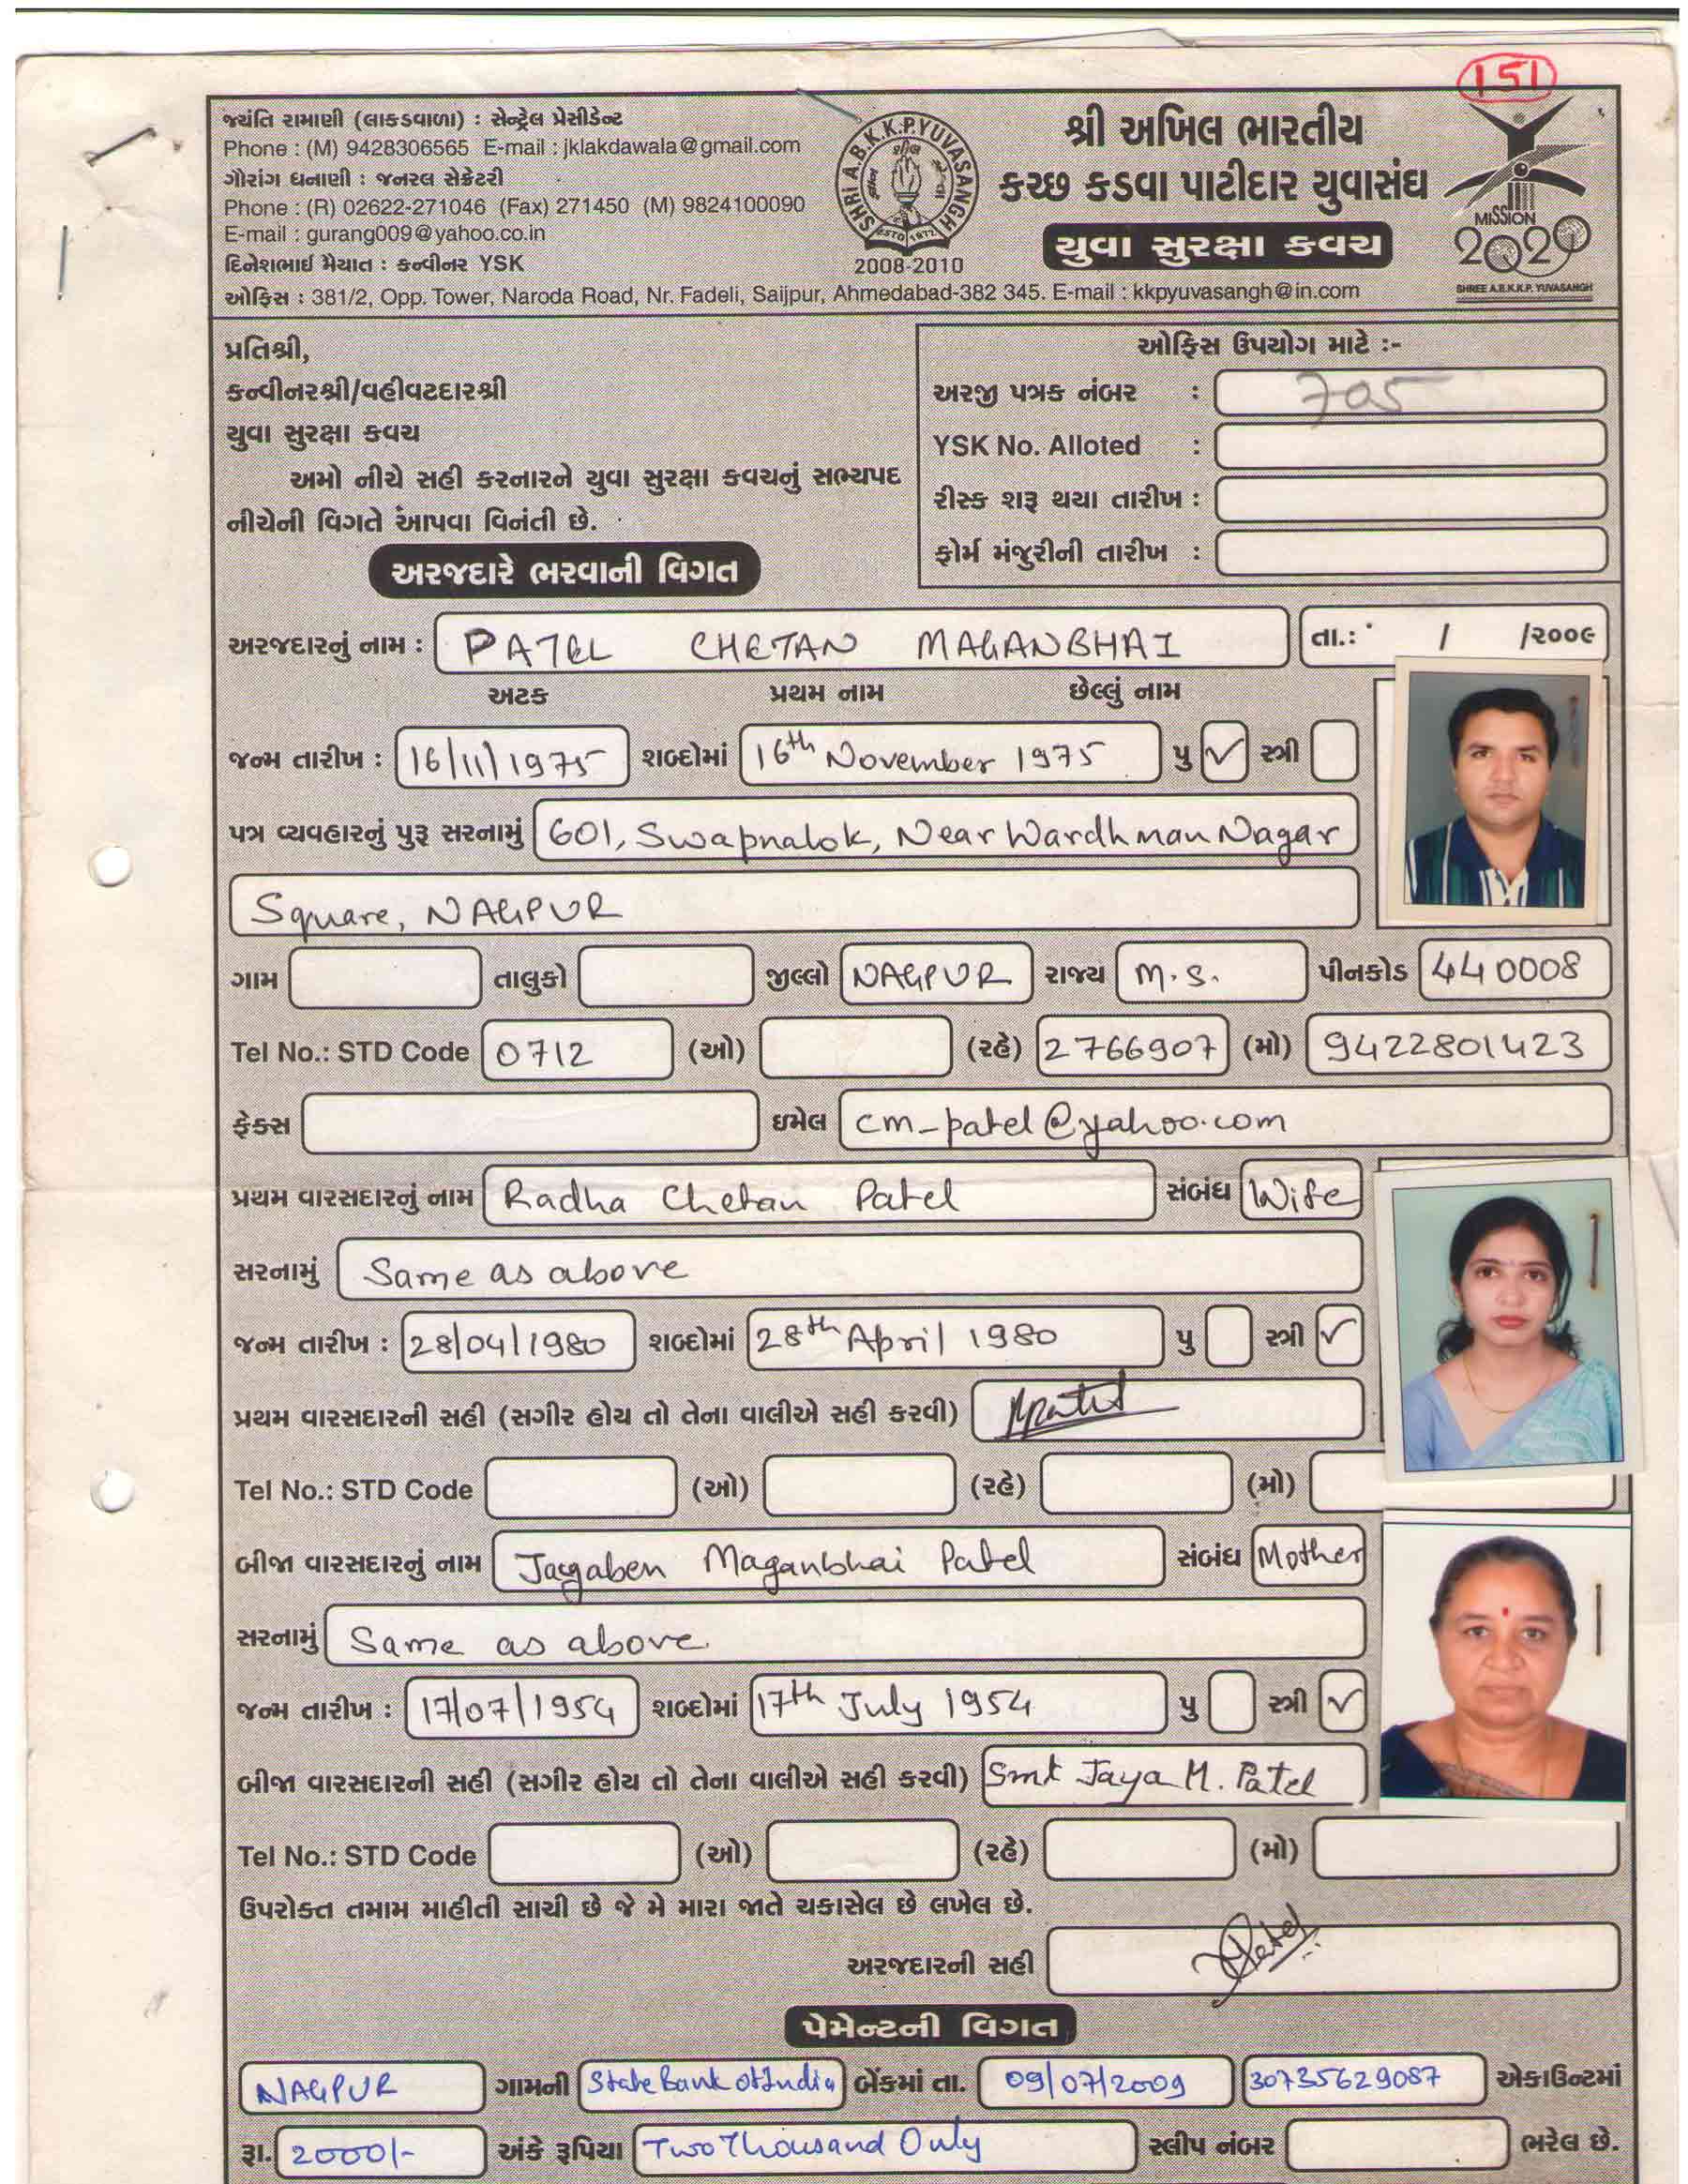 151
જયંતિ રામાણી (લાકડાવાળા) : સેન્ટ્રેલ પ્રેસીડેન્ટ
Phone : (M) 9428306565 E-mail : jklakdawala@gmail.com
ગૌરાંગ ધનાણી : જનરલ સેક્રેટરી
Phone : (R) 02622-271046 (Fax) 271450 (M) 9824100090
E-mail : gurang009@yahoo.co.in
દિનેશભાઈ મેયાત : કન્વીનર YSK
SHRI A.B.K.K.P. YUVASANGH
ESTD 1972
2008-2010
શ્રી અખિલ ભારતીય
કચ્છ કડવા પાટીદાર યુવાસંઘ
યુવા સુરક્ષા કવચ
MISSION
2020
SHREE A.B.K.K.P. YUVASANGH
ઓફિસ : 381/2, Opp. Tower, Naroda Road, Nr. Fadeli, Saijpur, Ahmedabad-382 345. E-mail : kkpyuvasangh@in.com
પ્રતિશ્રી,
કન્વીનરશ્રી/વહીવટદારશ્રી
યુવા સુરક્ષા કવચ
અમો નીચે સહી કરનારને યુવા સુરક્ષા કવચનું સભ્યપદ
નીચેની વિગતે આપવા વિનંતી છે.
ઓફિસ ઉપયોગ માટે :-
અરજી પત્રક નંબર : 705
YSK No. Alloted :
રીસ્ક શરૂ થયા તારીખ :
ફોર્મ મંજુરીની તારીખ :
અરજદારે ભરવાની વિગત
અરજદારનું નામ : PATEL CHETAN MAGANBHAI તા.: / /૨૦૦૯
અટક પ્રથમ નામ છેલ્લું નામ
જન્મ તારીખ : 16/11/1975 શબ્દોમાં 16th November 1975 પુ ✓ સ્ત્રી
પત્ર વ્યવહારનું પુરૂ સરનામું 601, Swapnalok, Near Wardhman Nagar
Square, NAGPUR
ગામ તાલુકો જીલ્લો NAGPUR રાજ્ય M.S. પીનકોડ 440008
Tel No.: STD Code 0712 (ઓ) (રહે) 2766907 (મો) 9422801423
ફેક્સ ઇમેલ cm_patel@yahoo.com
પ્રથમ વારસદારનું નામ Radha Chetan Patel સંબંધ Wife
સરનામું Same as above
જન્મ તારીખ : 28/04/1980 શબ્દોમાં 28th April 1980 પુ સ્ત્રી ✓
પ્રથમ વારસદારની સહી (સગીર હોય તો તેના વાલીએ સહી કરવી)
Tel No.: STD Code (ઓ) (રહે) (મો)
બીજા વારસદારનું નામ Jayaben Maganbhai Patel સંબંધ Mother
સરનામું Same as above.
જન્મ તારીખ : 17/07/1954 શબ્દોમાં 17th July 1954 પુ સ્ત્રી ✓
બીજા વારસદારની સહી (સગીર હોય તો તેના વાલીએ સહી કરવી) Smt Jaya M. Patel
Tel No.: STD Code (ઓ) (રહે) (મો)
ઉપરોક્ત તમામ માહીતી સાચી છે જે મે મારા જાતે ચકાસેલ છે લખેલ છે.
અરજદારની સહી
પેમેન્ટની વિગત
NAGPUR ગામની State Bank of India બેંકમાં તા. 09/07/2009 30735629087 એકાઉન્ટમાં
રૂા. 2000/- અંકે રૂપિયા Two Thousand Only સ્લીપ નંબર ભરેલ છે.